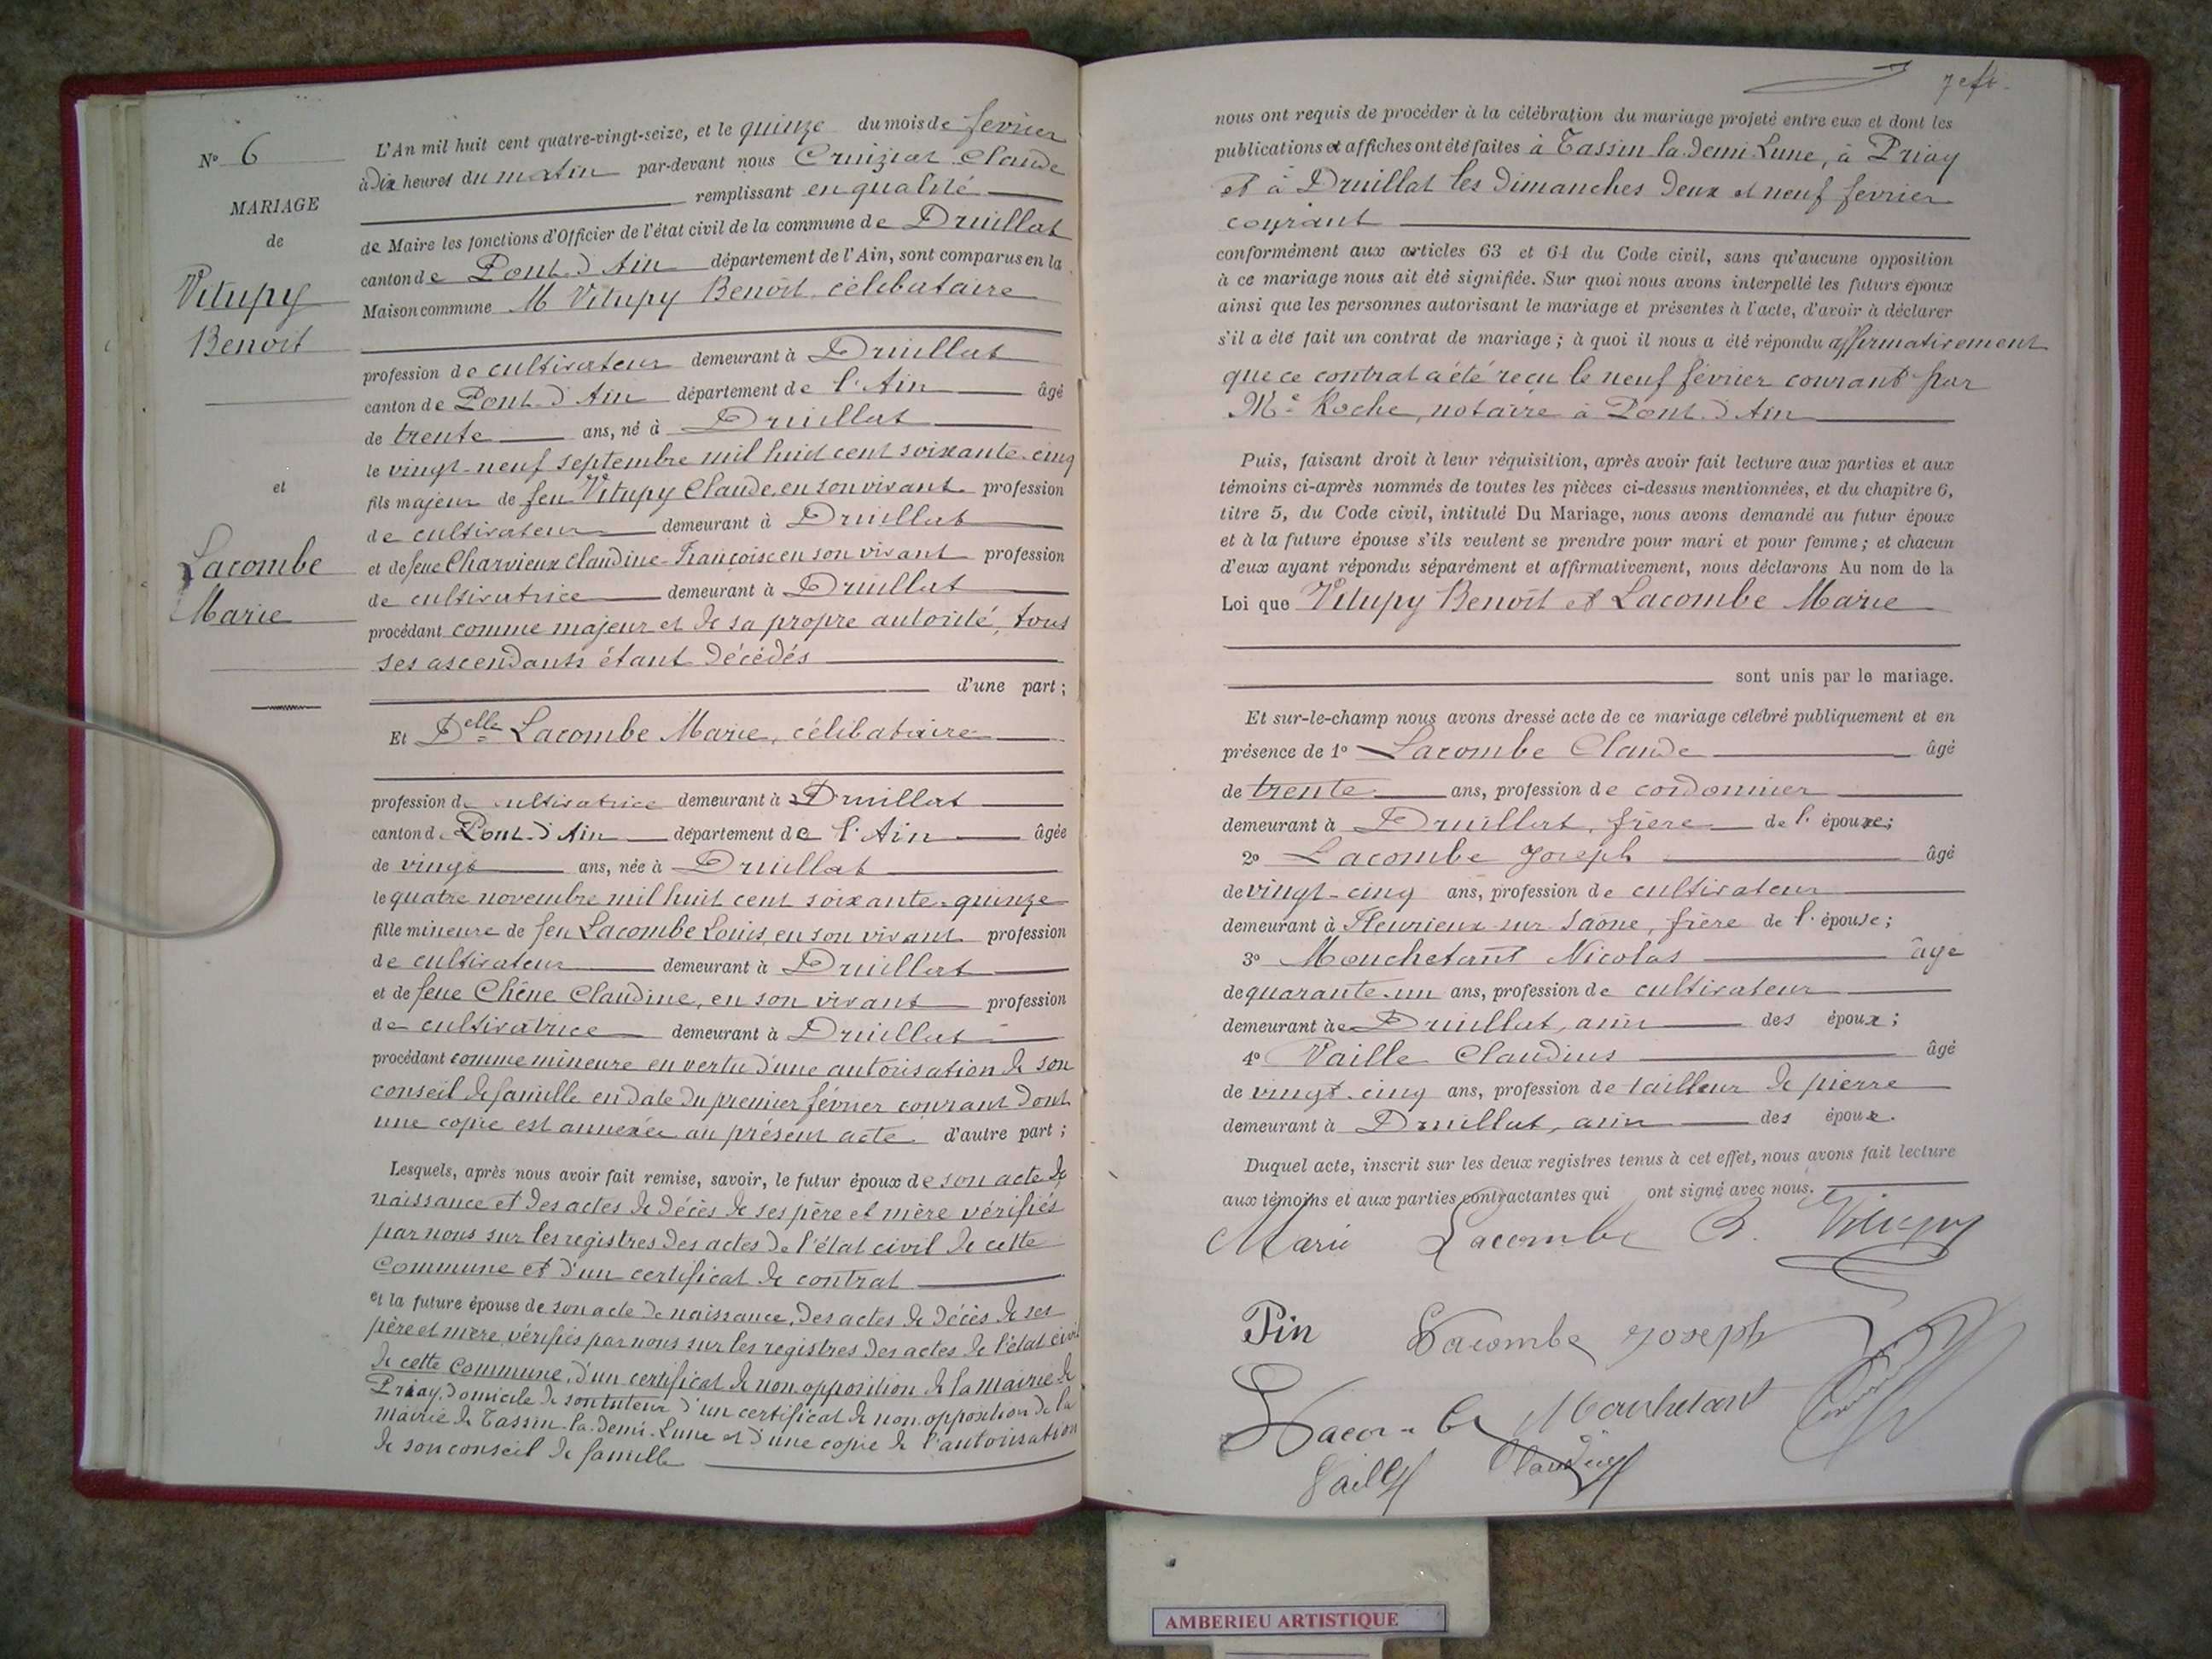 N° 6
MARIAGE
de
Vitupy
Benoit
et
Lacombe
Marie
L'An mil huit cent quatre-vingt-seize, et le quinze du mois de fevrier
à Dix heures du matin par-devant nous Cruiziat Claude
remplissant en qualité
de Maire les fonctions d'Officier de l'état civil de la commune de Druillat
canton de Pont d'Ain département de l'Ain, sont comparus en la
Maison commune M Vitupy Benoit, célibataire
profession de cultivateur demeurant à Druillat
canton de Pont d'Ain département de l'Ain âgé
de trente ans, né à Druillat
le vingt-neuf septembre mil huit cent soixante-cinq
fils majeur de feu Vitupy Claude, en son vivant profession
de cultivateur demeurant à Druillat
et de feue Charvieux Claudine-Françoise en son vivant profession
de cultivatrice demeurant à Druillat
procédant comme majeur et de sa propre autorité, tous
ses ascendants étant décédés
d'une part ;
Et Delle Lacombe Marie, célibataire
profession de cultivatrice demeurant à Druillat
canton de Pont-d'Ain département de l'Ain âgée
de vingt ans, née à Druillat
le quatre novembre mil huit cent soixante-quinze
fille mineure de feu Lacombe Louis, en son vivant profession
de cultivateur demeurant à Druillat
et de feue Chêne Claudine, en son vivant profession
de cultivatrice demeurant à Druillat
procédant comme mineure en vertu d'une autorisation de son
conseil de famille en date du premier février courant dont
une copie est annexée au présent acte d'autre part ;
Lesquels, après nous avoir fait remise, savoir, le futur époux de son acte de
naissance et des actes de décès de ses père et mère vérifiés
par nous sur les registres des actes de l'état civil de cette
Commune et d'un certificat de contrat
et la future épouse de son acte de naissance, des actes de décès de ses
père et mère vérifiés par nous sur les registres des actes de l'état civil
de cette Commune, d'un certificat de non opposition de la mairie de
Priay, domicile de son tuteur d'un certificat de non opposition de la
mairie de Tassin-la-demi-Lune et d'une copie de l'autorisation
de son conseil de famille
nous ont requis de procéder à la célébration du mariage projeté entre eux et dont les
publications et affiches ont été faites à Tassin la demi Lune, à Priay
et à Druillat les dimanches deux et neuf fevrier
courant
conformément aux articles 63 et 64 du Code civil, sans qu'aucune opposition
à ce mariage nous ait été signifiée. Sur quoi nous avons interpellé les futurs époux
ainsi que les personnes autorisant le mariage et présentes à l'acte, d'avoir à déclarer
s'il a été fait un contrat de mariage ; à quoi il nous a été répondu affirmativement
que ce contrat a été reçu le neuf février courant par
Me Roche, notaire à Pont d'Ain
Puis, faisant droit à leur réquisition, après avoir fait lecture aux parties et aux
témoins ci-après nommés de toutes les pièces ci-dessus mentionnées, et du chapitre 6,
titre 5, du Code civil, intitulé Du Mariage, nous avons demandé au futur époux
et à la future épouse s'ils veulent se prendre pour mari et pour femme ; et chacun
d'eux ayant répondu séparément et affirmativement, nous déclarons Au nom de la
Loi que Vitupy Benoît et Lacombe Marie
sont unis par le mariage.
Et sur-le-champ nous avons dressé acte de ce mariage célébré publiquement et en
présence de 1° Lacombe Claude âgé
de trente ans, profession de cordonnier
demeurant à Druillat, frère de l'épouse ;
2° Lacombe Joseph âgé
de vingt-cinq ans, profession de cultivateur
demeurant à Fleurieux sur Saône, frère de l'épouse ;
3° Mouchetant Nicolas âgé
de quarante-un ans, profession de cultivateur
demeurant à Druillat, ami des époux ;
4° Vaille Claudius âgé
de vingt-cinq ans, profession de tailleur de pierre
demeurant à Druillat, ami des époux.
Duquel acte, inscrit sur les deux registres tenus à cet effet, nous avons fait lecture
aux témoins et aux parties contractantes qui ont signé avec nous.
Marie Lacombe B. Vitupy
Pin Lacombe Joseph
Lacombe Mouchetant
Vaille Claudius
AMBERIEU ARTISTIQUE